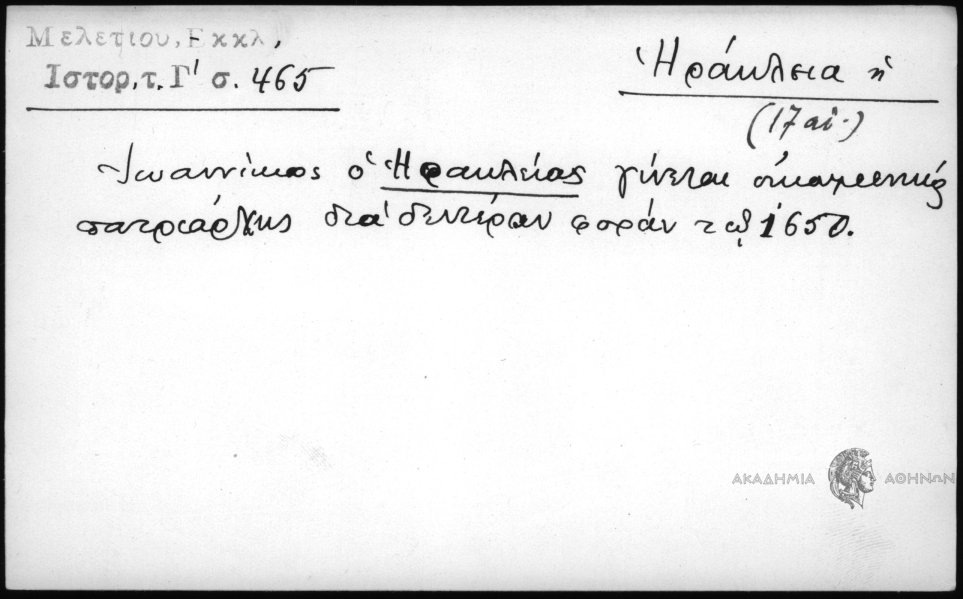 Μελετίου, Εκκλ,
Ιστορ, τ. Γ' σ. 465
Ἡράκλεια ἡ
(17 αἰ.)
Ἰωαννίκιος ὁ Ἡρακλείας γίνεται οἰκουμενικός
πατριάρχης διά δευτέραν φοράν τῷ 1650.
ΑΚΑΔΗΜΙΑ ΑΘΗΝΩΝ